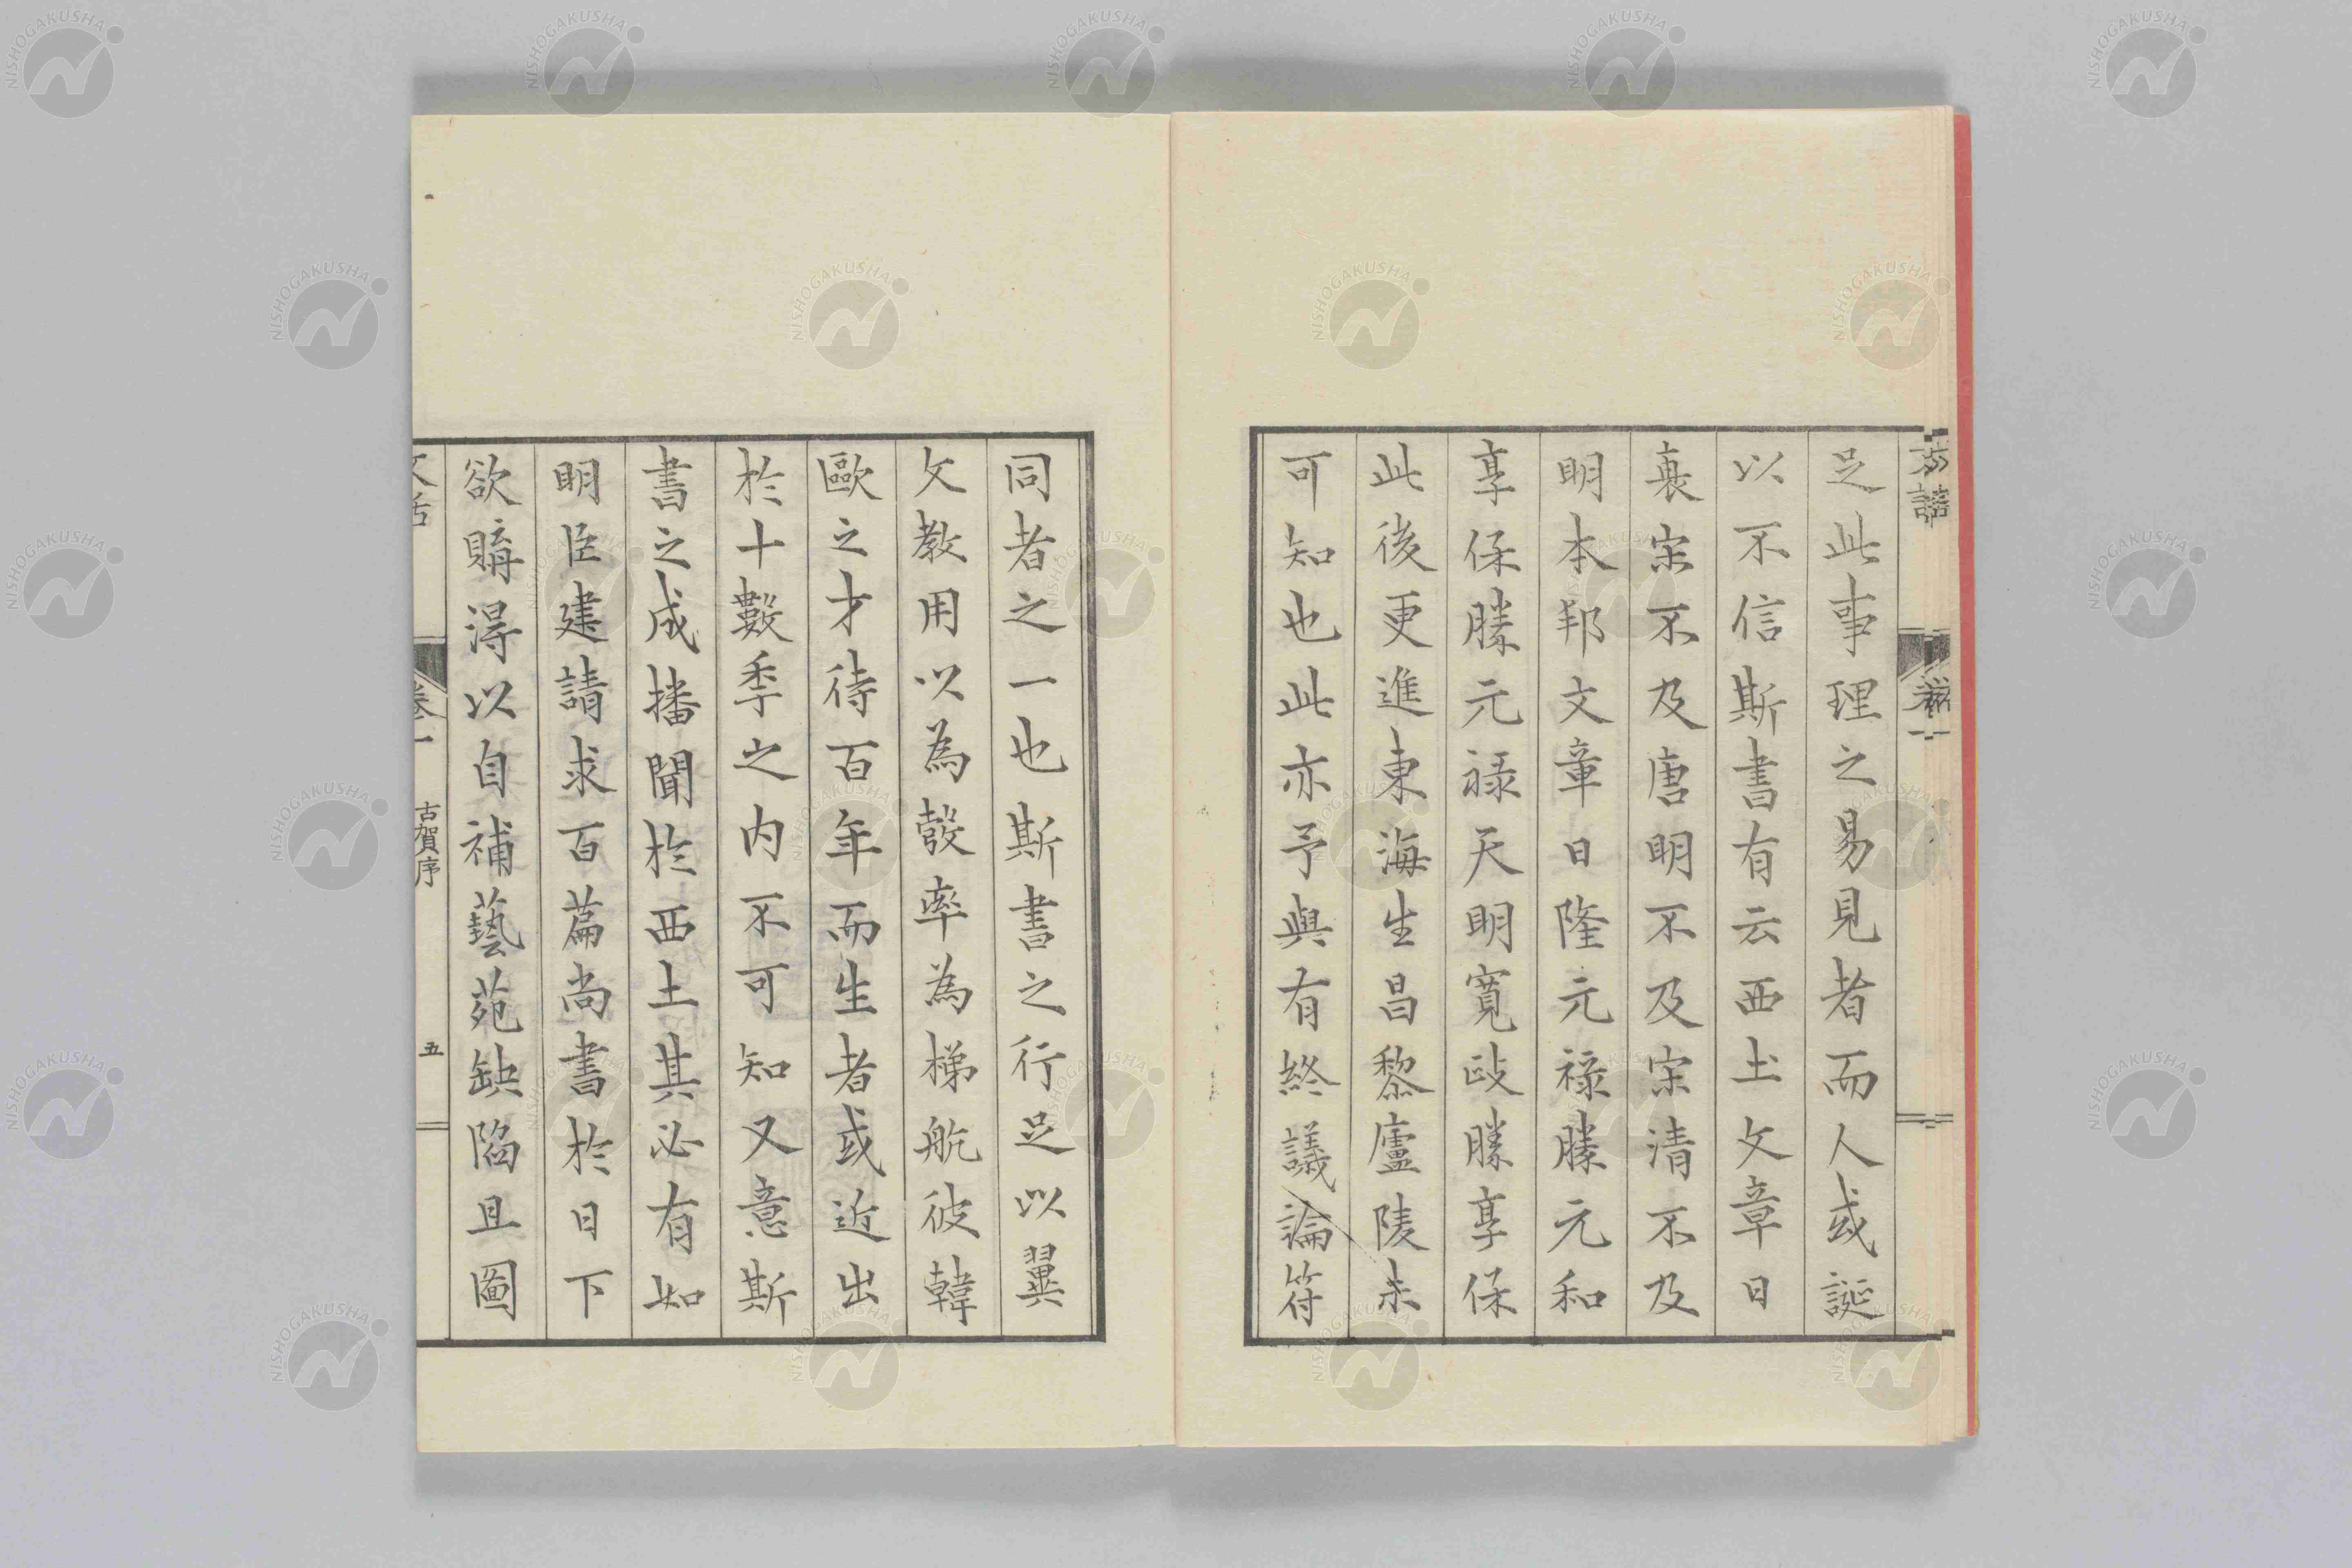 足此事理之易見者而人或誕
以不信斯書有云西土文章日
衰宋不及唐明不及宋清不及
明本邦文章日隆元祿勝元和
享保勝元祿天明寬政勝享保
此後更進東海生昌黎廬陵未
可知也此亦予與有終議論符
同者之一也斯書之行足以翼
文教用以為彀率為梯航彼韓
歐之才待百年而生者或近出
於十數季之內不可知又意斯
書之成播聞於西土其必有如
明臣建請求百篇尚書於日下
欲購得以自補藝苑缺陷且圖
文話
卷一
古賀序
五
NISHOGAKUSHA